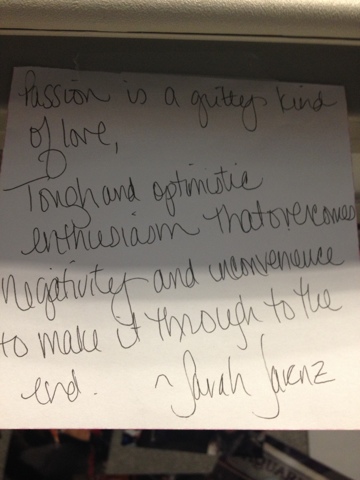 Passion is a gritty kind
of love,
Tough and optimistic
enthusiasm that overcomes
negativity and inconvenience
to make it through to the
end. ~ Sarah